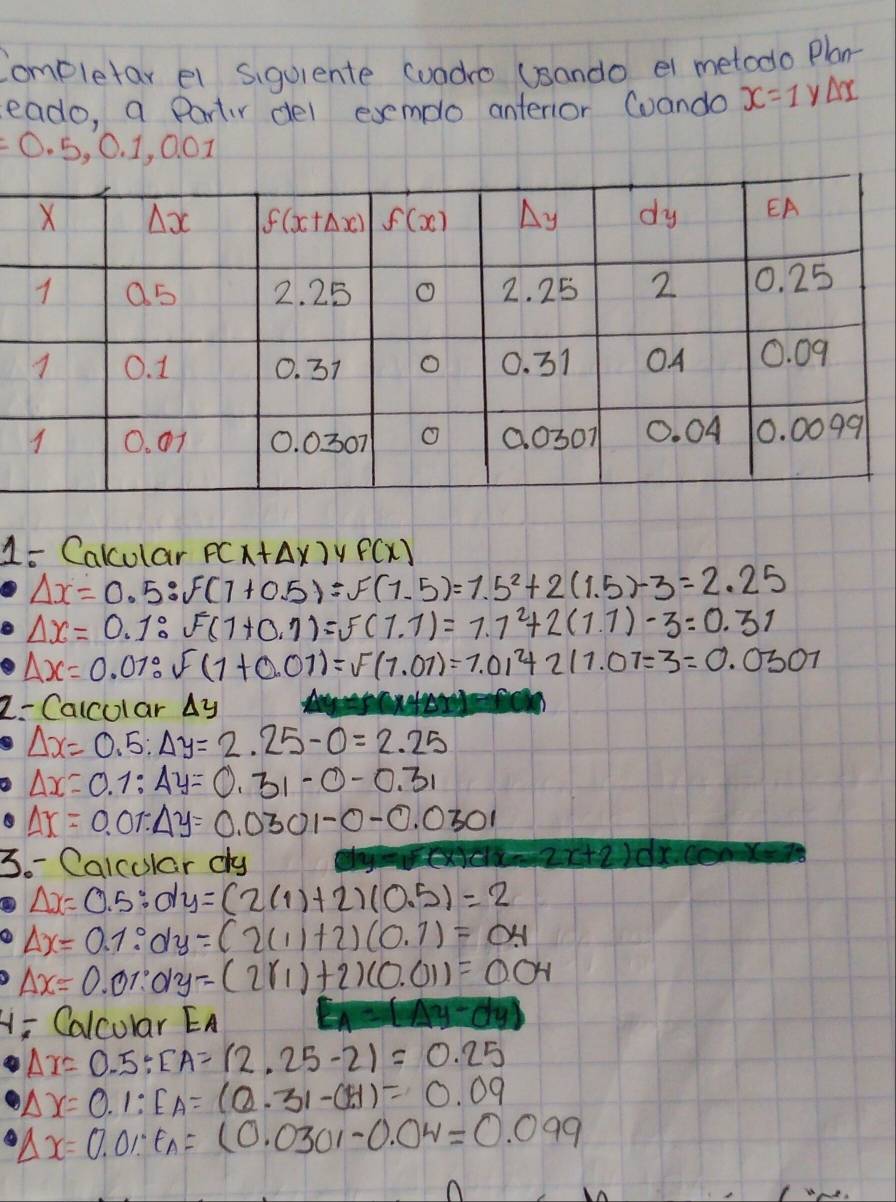 Completar el siguiente cuadro usando el metodo Plan-
eado, a Partir del exemplo anterior Cuando x=1 y Δx
= 0.5, 0.1, 0.01
X Δx f(x+Δx) f(x) Δy dy EA
1 0.5 2.25 0 2.25 2 0.25
1 0.1 0.31 0 0.31 04 0.09
1 0.01 0.0301 0 0.0301 0.04 0.0099
1.- Calcular f(x+Δx) y f(x)
• Δx = 0.5: f(1+0.5) = f(1.5) = 1.5²+2(1.5)-3 = 2.25
• Δx = 0.1: f(1+0.1) = f(1.1) = 1.1²+2(1.1)-3 = 0.31
• Δx = 0.01: f(1+0.01) = f(1.01) = 1.01²+2(1.01=3=0.0301
2.- Calcular Δy Δy=f(x+Δx)-f(x)
• Δx = 0.5: Δy = 2.25-0 = 2.25
• Δx = 0.1: Δy = 0.31-0-0.31
• Δx = 0.01: Δy = 0.0301-0-0.0301
3.- Calcular dy dy=f(x)dx=2x+2)dx.con x=1:
• Δx = 0.5: dy = (2(1)+2)(0.5) = 2
• Δx = 0.1: dy = (2(1)+2)(0.1) = 0.4
• Δx = 0.01: dy = (2(1)+2)(0.01) = 0.04
4.- Calcular EA EA=(Δy-dy)
• Δx = 0.5: EA = (2.25-2) = 0.25
• Δx = 0.1: EA = (0.31-0.4) = 0.09
• Δx = 0.01: EA = (0.0301-0.04 = 0.099